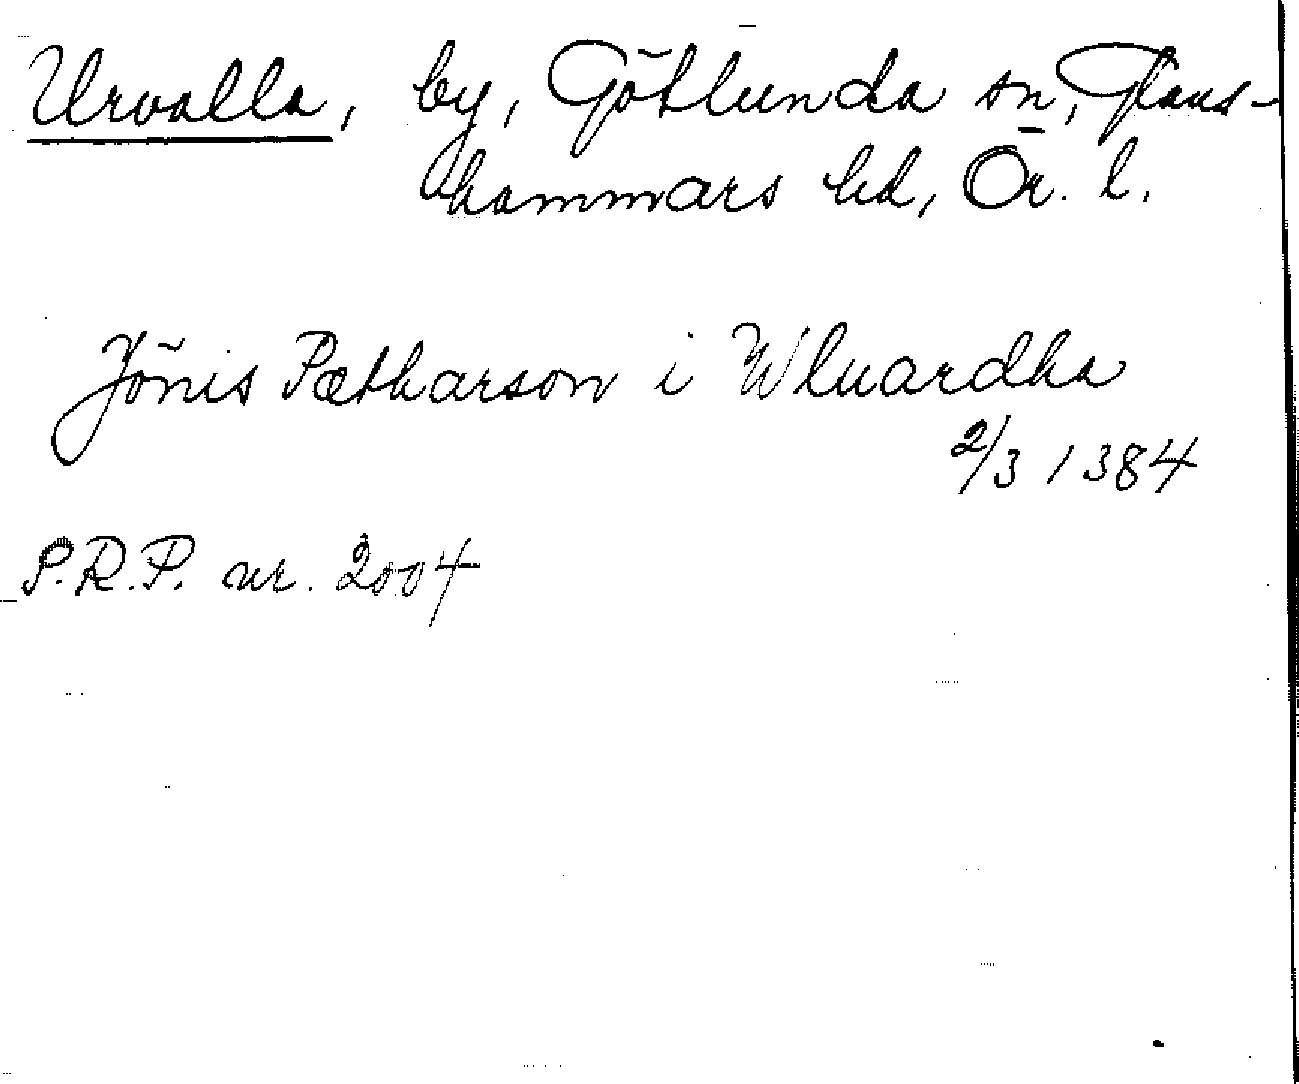 Urvalla, by, Götlunda sn, Glans-
hammars hd, Ör. l.
Jönis Pætharson i Wluardha
2/3 1384
P.R.P. nr. 2004